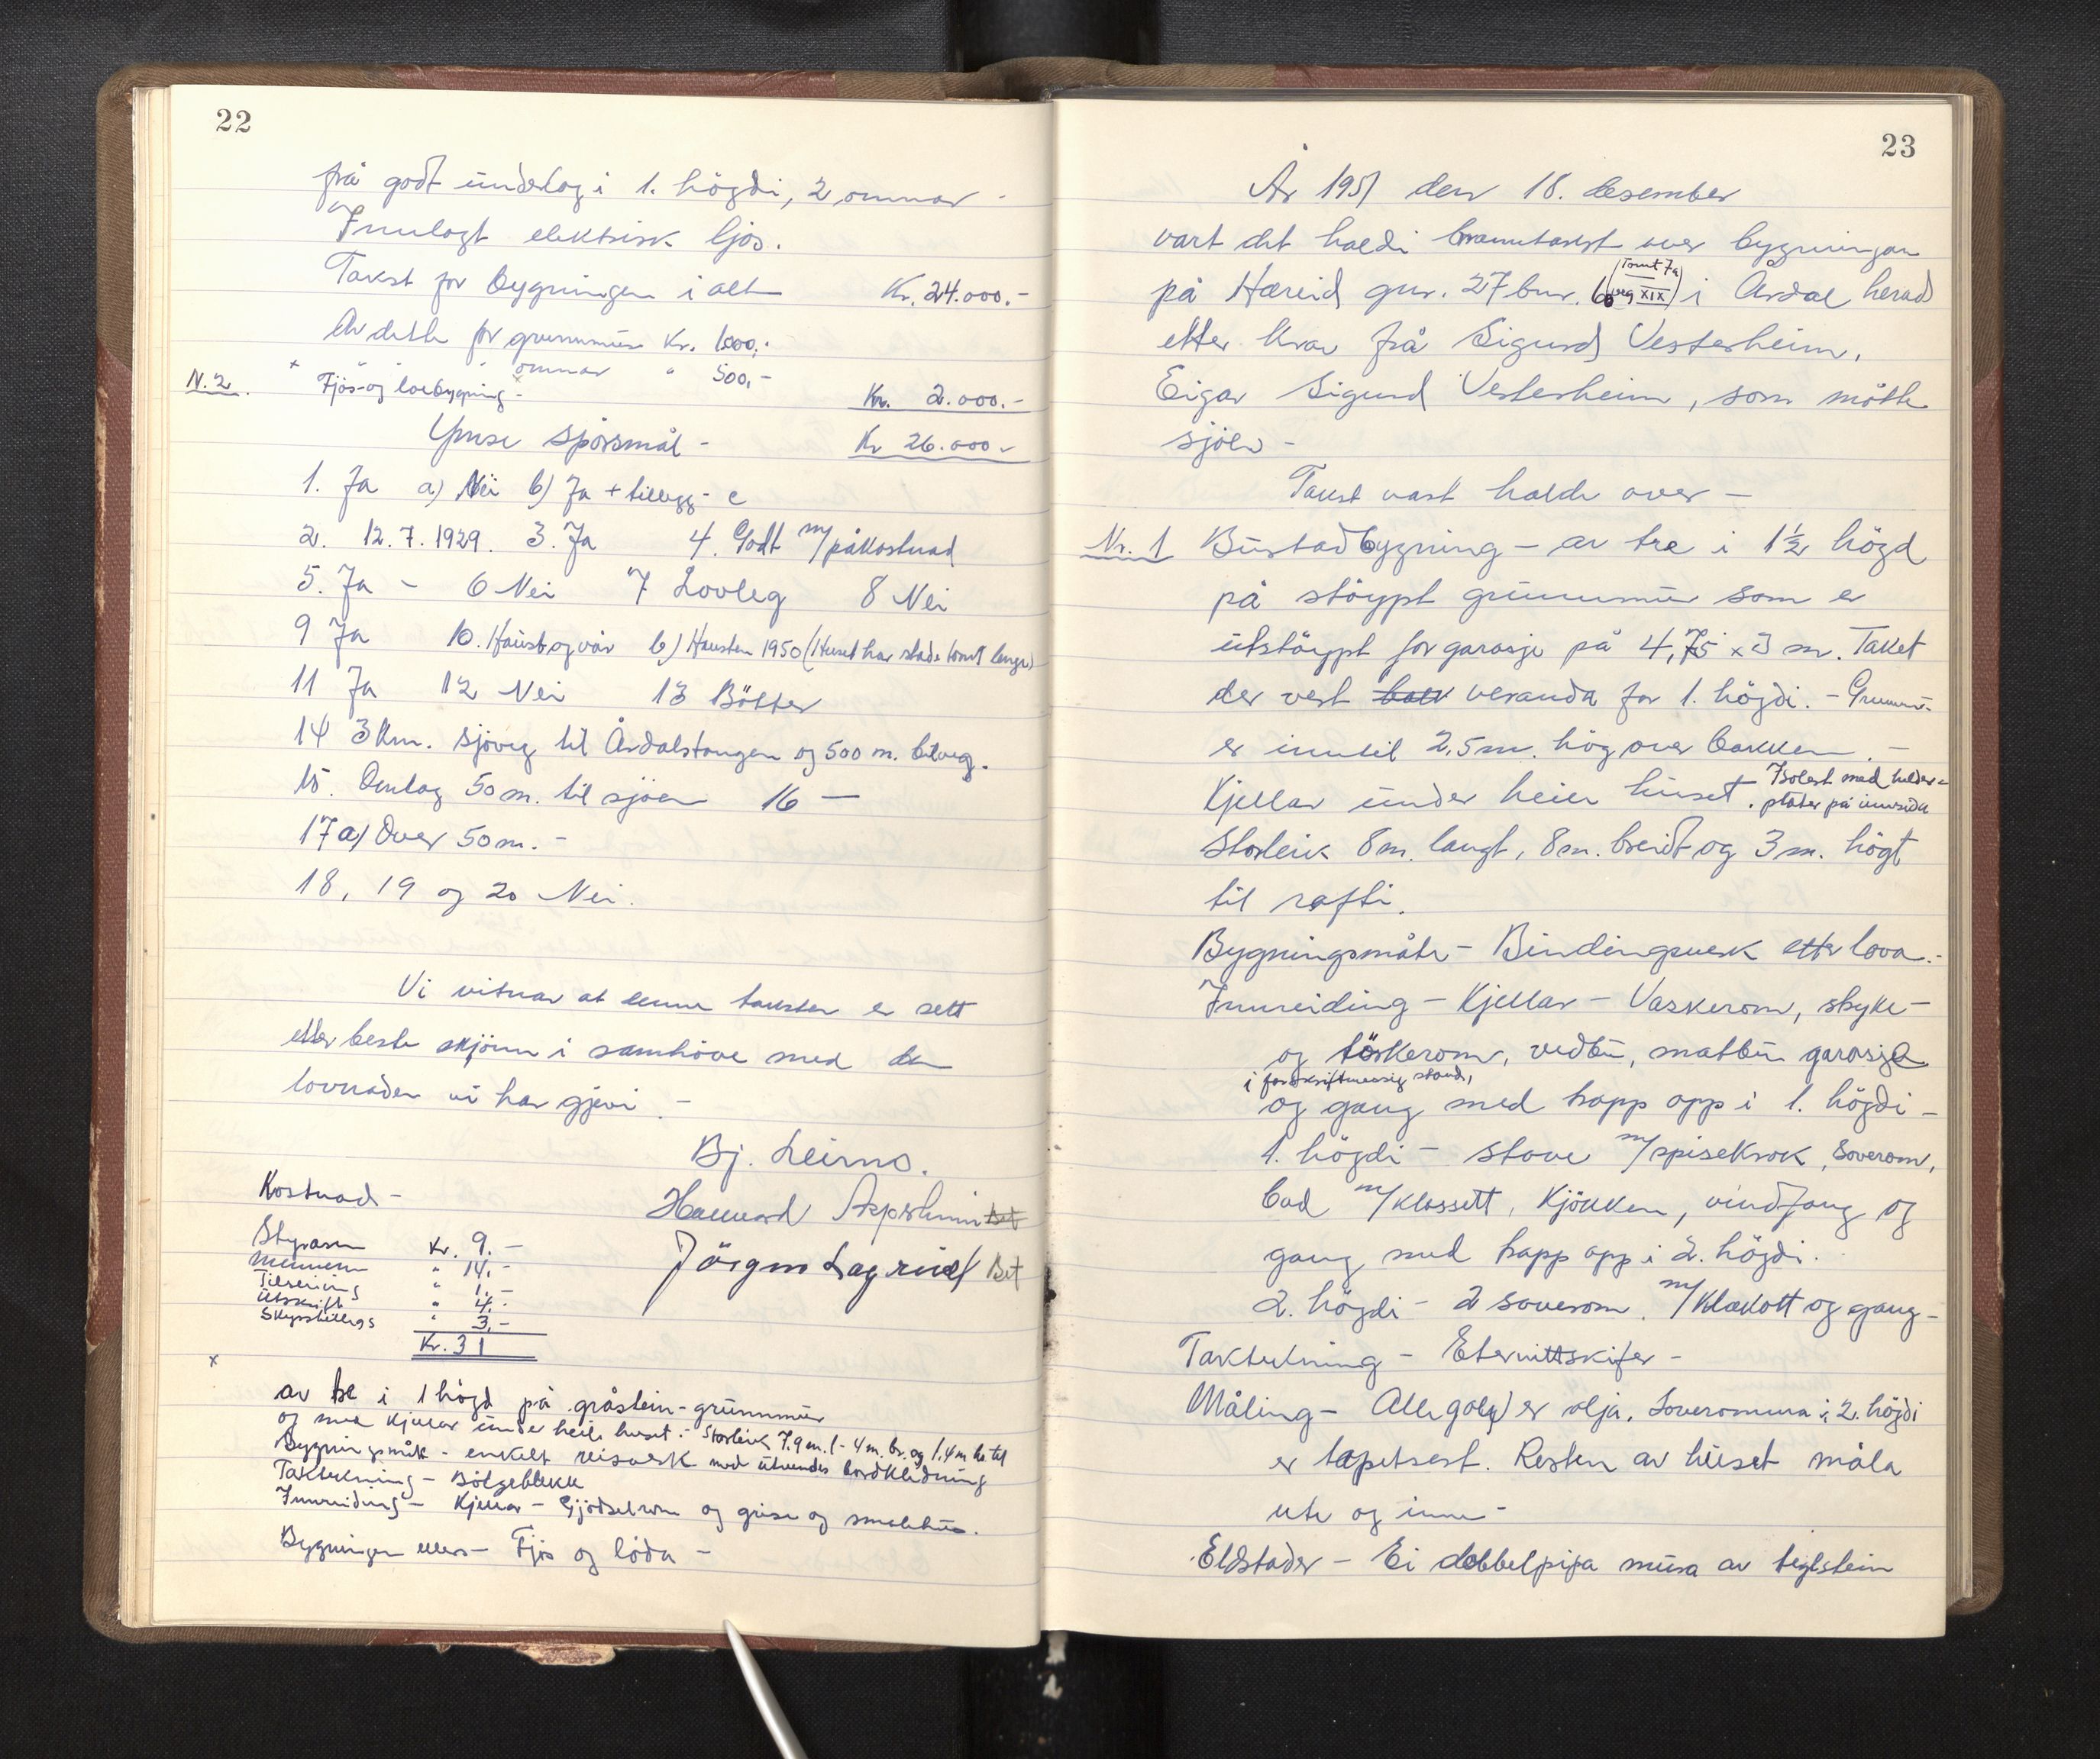 22
frå godt underlag i 1. högdi, 2 omnar -
Innlagt elektrisk ljos.
Takst for bygningen i alt Kr. 24.000.-
Av dette for grunnmur Kr. 1000,-
" " " omnar " 500,-
N. 2 Fjös- og löebygning - Kr. 2.000.-
Ymse spörsmål - Kr 26.000.-
1. Ja a) Nei b) Ja + tillegg - c
2. 12.7.1929. 3. Ja 4. Godt m/påkostnad
5. Ja - 6 Nei 7 Lovleg 8 Nei
9 Ja 10. Haust og vår b) Hausten 1950 (Huset har stade tomt lenge)
11 Ja 12 Nei 13 Bötter
14 3 Km. sjöveg til Årdalstangen og 500 m. bilveg.
15. Omlag 50 m. til sjöen 16 —
17 a) Over 50 m. -
18, 19 og 20 Nei.
Vi vitnar at denne taksten er sett
etter beste skjönn i samhöve med den
lovnaden vi har gjevi. -
Bj. Leirmo.
Kostnad -
Styraren Kr. 9.-
Mennene " 14.-
" 1.-
Utskrift " 4.-
" 3,-
Kr. 31
x
av tre i 1 högd på gråstein-grunnmur
og med kjellar under heile huset. - Storleik 7.9 m. l - 4 m. br. og 1.4 m hö. til
Bygningsmåte - enkelt reisverk med utvendes bordkledning
Taktekning - Bölgeblekk
Innreiding - Kjellar - Gjödselrom og grise og smalehus.
Bygningen ellers - Fjös og löda -
23
År 1951 den 18. desember
vart det haldi branntakst over bygningan
på Hæreid gnr. 27 bnr. 6 (Tomt 7a veg XIX) i Årdal herad
etter krav frå Sigurd Vesterheim.
Eigar Sigurd Vesterheim, som mötte
sjölv -
Takst vart halde over -
Nr. 1 Bustadbygning - av tre i 1½ högd
på stöypt grunnmur som er
utstöypt for garasje på 4,75 x 3 m. Taket
der vert veranda for 1. högdi. - Grunnm.
er inntil 2,5 m. hög over bakken -
Kjellar under heile huset. Isolert med helder-
plater på innsida
Storleik 8 m. langt, 8 m. breidt og 3 m. högt
til rafti.
Bygningsmåte - Bindingsverk etter lova. -
Innreiding - Kjellar - Vaskerom, stryke-
og törkerom, vedbu, matbu garasje
i forskriftmessig stand,
og gang med trapp opp i 1. högdi -
1. högdi - stove m/spisekrok, Soverom,
bad m/klossett, Kjökken, vindfang og
gang med trapp opp i 2. högdi.
2. högdi - 2 soverom. m/klekott og gang -
Taktekning - Eternittskifer -
Måling - Alle golv er olja. Soveromma i 2. högdi
er tapetsert. Resten av huset måla
ute og inne -
Eldstader - Ei dobbelpipa mura av teglstein